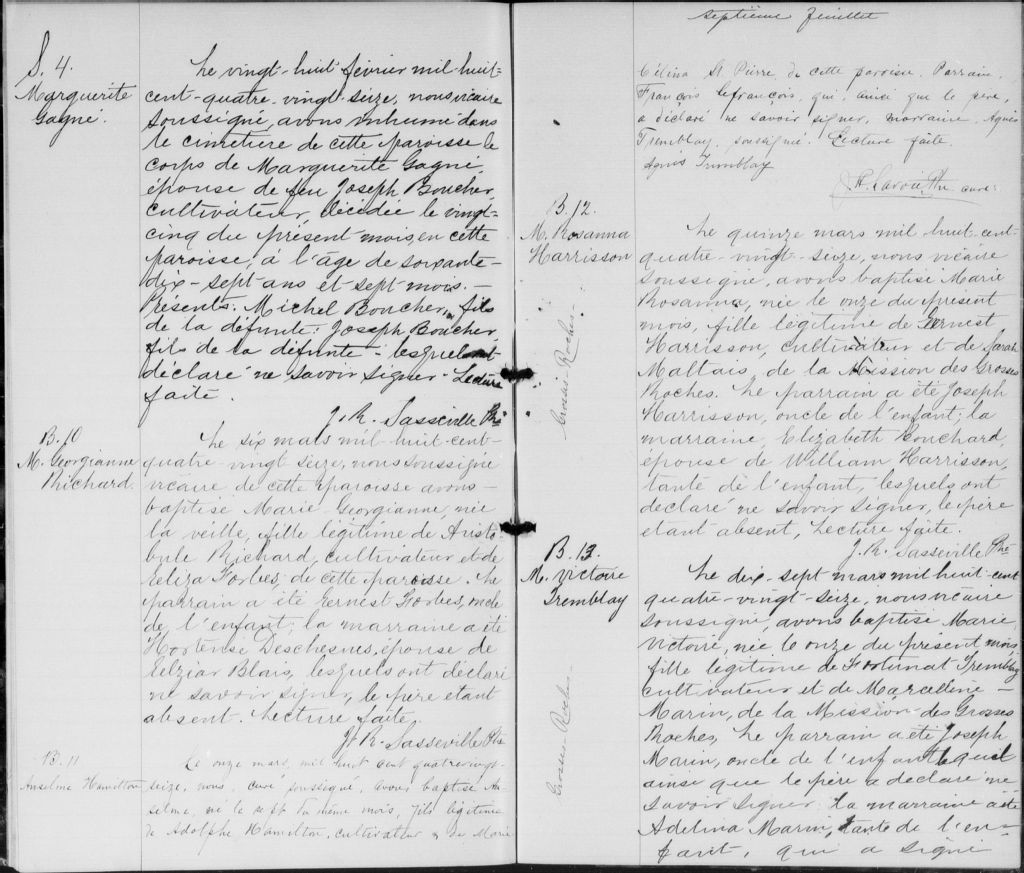 S. 4.
Marguerite
Gagné.
Le vingt-huit février mil-huit-
cent-quatre-vingt-seize, nous vicaire
soussigné, avons inhumé dans
le cimetière de cette paroisse le
corps de Marguerite Gagné,
épouse de feu Joseph Boucher,
cultivateur, décédée le vingt-
cinq du présent mois, en cette
paroisse, à l'âge de soixante-
dix-sept ans et sept mois. -
Présents: Michel Boucher, fils
de la défunte; Joseph Boucher,
fils de la défunte - lesquels ont
déclaré ne savoir signer - Lecture
faite.
J. R. Sasseville Ptre
B. 10
M. Georgianne
Richard.
Le six mars mil-huit-cent-
quatre-vingt seize, nous soussigné
vicaire de cette paroisse avons-
baptisé Marie-Georgianne, née
la veille, fille légitime de Aristo-
bule Richard, cultivateur et de
Eliza Forbes, de cette paroisse. Le
parrain a été Ernest Forbes, oncle
de l'enfant; la marraine a été
Hortense Deschesnes, épouse de
Elzéar Blais, lesquels ont déclaré
ne savoir signer, le père etant
absent. Lecture faite.
J. R. Sasseville Ptre
B. 11
Anselme Hamilton
Le onze mars, mil huit cent quatre vingt-
seize, nous, curé soussigné, avons baptisé An-
selme, né le sept du même mois, fils légitime
de Adolphe Hamilton, cultivateur & de Marie
septième feuillet
Célina St. Pierre de cette paroisse. Parrain,
François Lefrançois, qui, ainsi que le père,
a déclaré ne savoir signer, marraine, Agnès
Tremblay, soussigné. Lecture faite.
Agnis Tremblay
Lavoie Ptre curé.
B. 12.
M. Rosanna
Harrisson
Le quinze mars mil-huit-cent-
quatre-vingt-seize, nous vicaire
soussigné, avons baptisé Marie
Rosanna, née le onze du présent
mois, fille légitime de Ernest
Harrisson, cultivateur et de Sarah
Maltais, de la Mission des Grosses
Roches. Le parrain a été Joseph
Harrisson, oncle de l'enfant; la
marraine, Elizabeth Bouchard,
épouse de William Harrisson,
tante de l'enfant, lesquels ont
déclaré ne savoir signer, le père
etant absent, Lecture faite.
J. R. Sasseville Ptre
B. 13.
M. Victoire
Tremblay
Grosses Roches
Le dix-sept mars mil huit-cent
quatre-vingt-seize, nous vicaire
soussigné, avons baptisé Marie
Victoire, née le onze du présent mois,
fille légitime de Fortunat Tremblay
cultivateur et de Marcelline -
Marin, de la Mission des Grosses
Roches, Le parrain a été Joseph
Marin, oncle de l'enfant lequel
ainsi que le père a déclaré ne
savoir signer la marraine a été
Adelina Marin, tante de l'en-
fant, qui a signé